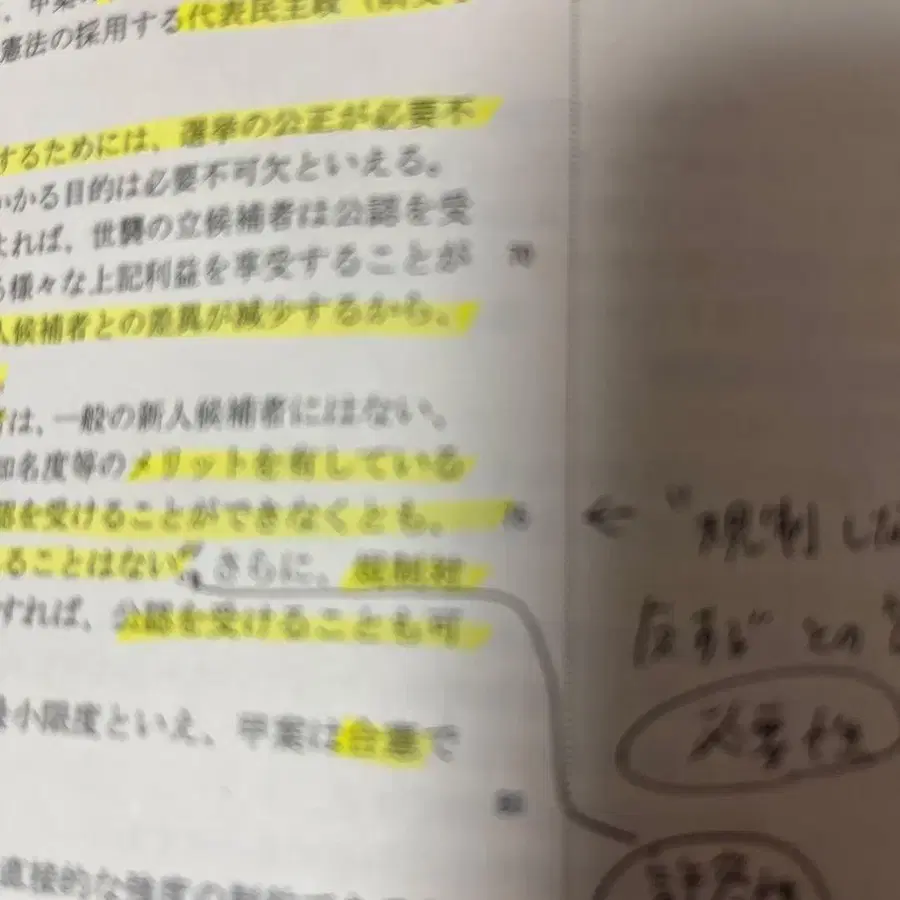 憲法の採用する代表民主
するためには、選挙の公正が必要不
かかる目的は必要不可欠といえる。
れば、世襲の立候補者は公認を受
様々な上記利益を享受することが
人候補者との差異が減少するから、
は、一般の新人候補者にはない、
知名度等のメリットを有している
認を受けることができなくとも、 75
ることはない。さらに、規制対
すれば、公認を受けることも可
小限度といえ、甲案は合憲で
直接的な
← "規制し
反する" との
必要性
許容性